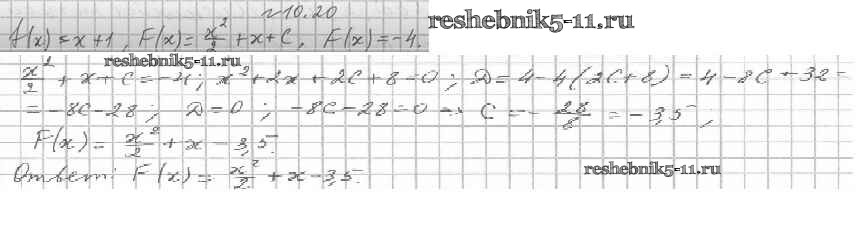 №10.20
reshebnik5-11.ru
f(x) = x+1, F(x) = x²/2 + x + C, F(x) = -4.
reshebnik5-11.ru
x²/2 + x + C = -4; x² + 2x + 2C + 8 = 0; D = 4 - 4(2C+8) = 4 - 8C - 32 =
= -8C - 28; D = 0; -8C - 28 = 0 → C = - 28/8 = -3,5;
F(x) = x²/2 + x - 3,5.
Ответ: F(x) = x²/2 + x - 3,5.
reshebnik5-11.ru